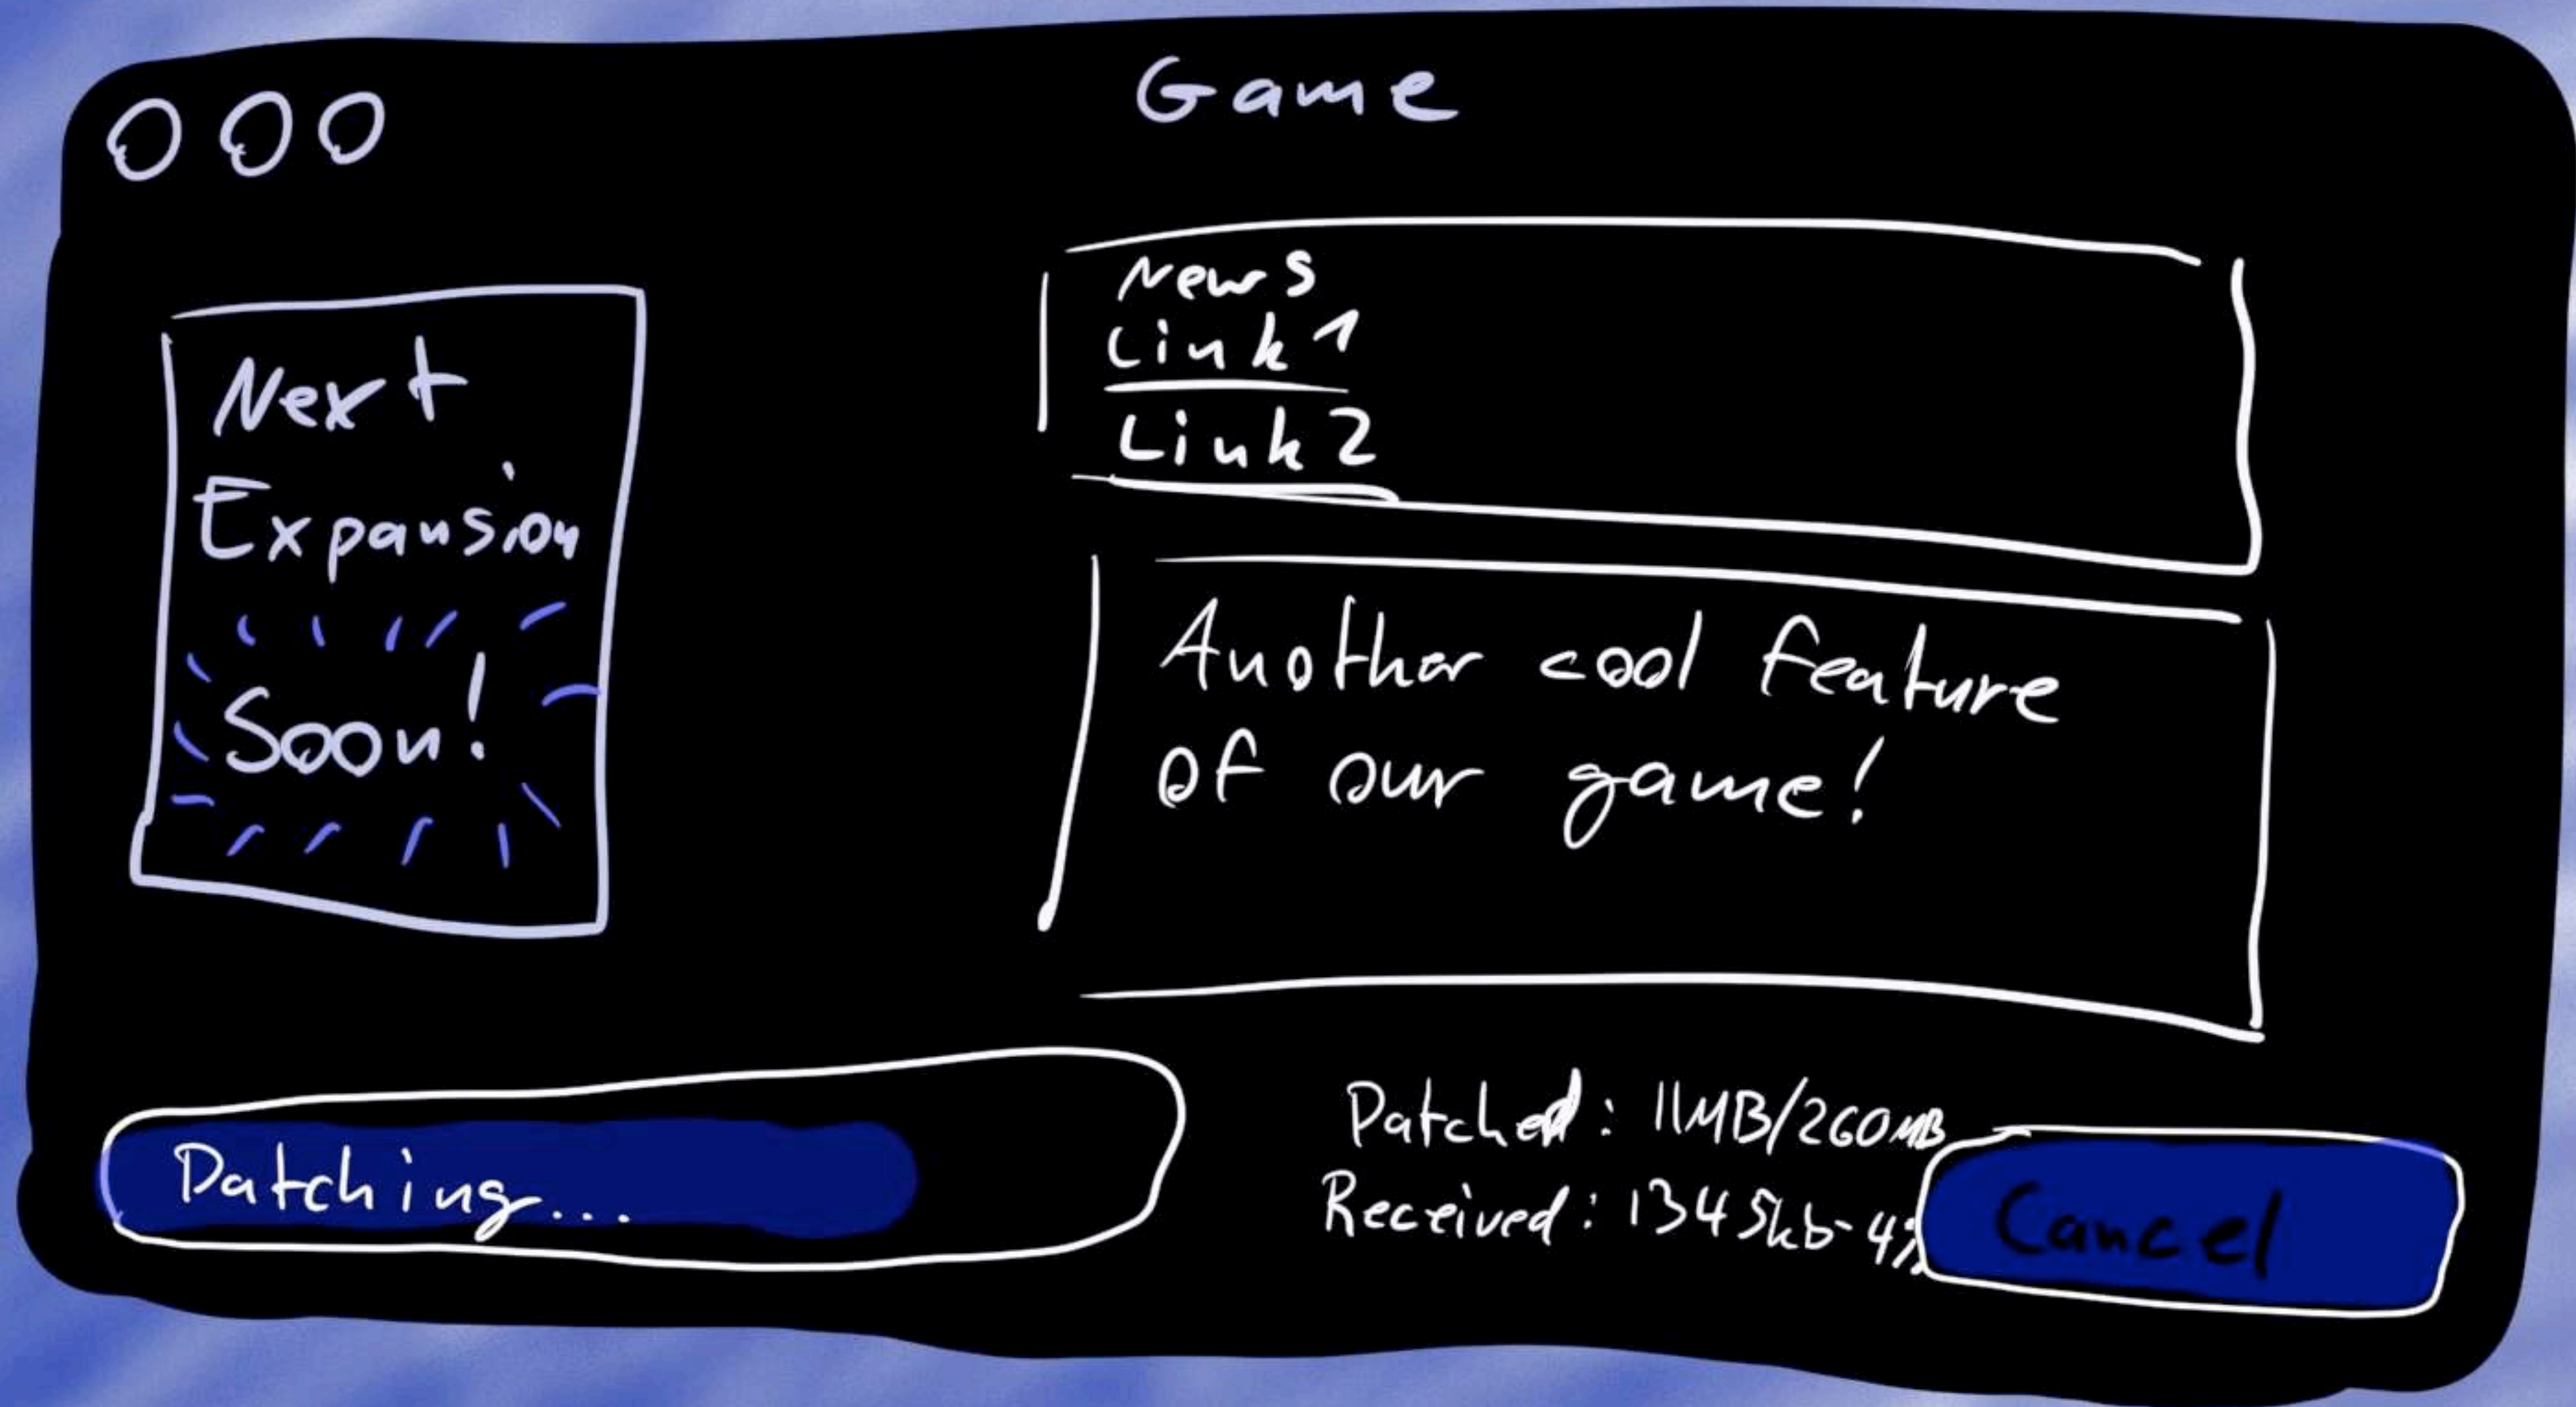 Game
Next
Expansion
Soon!
News
Link 1
Link 2
Another cool feature
of our game!
Patching...
Patched: 11MB/260MB
Received: 1345kb-4%
Cancel